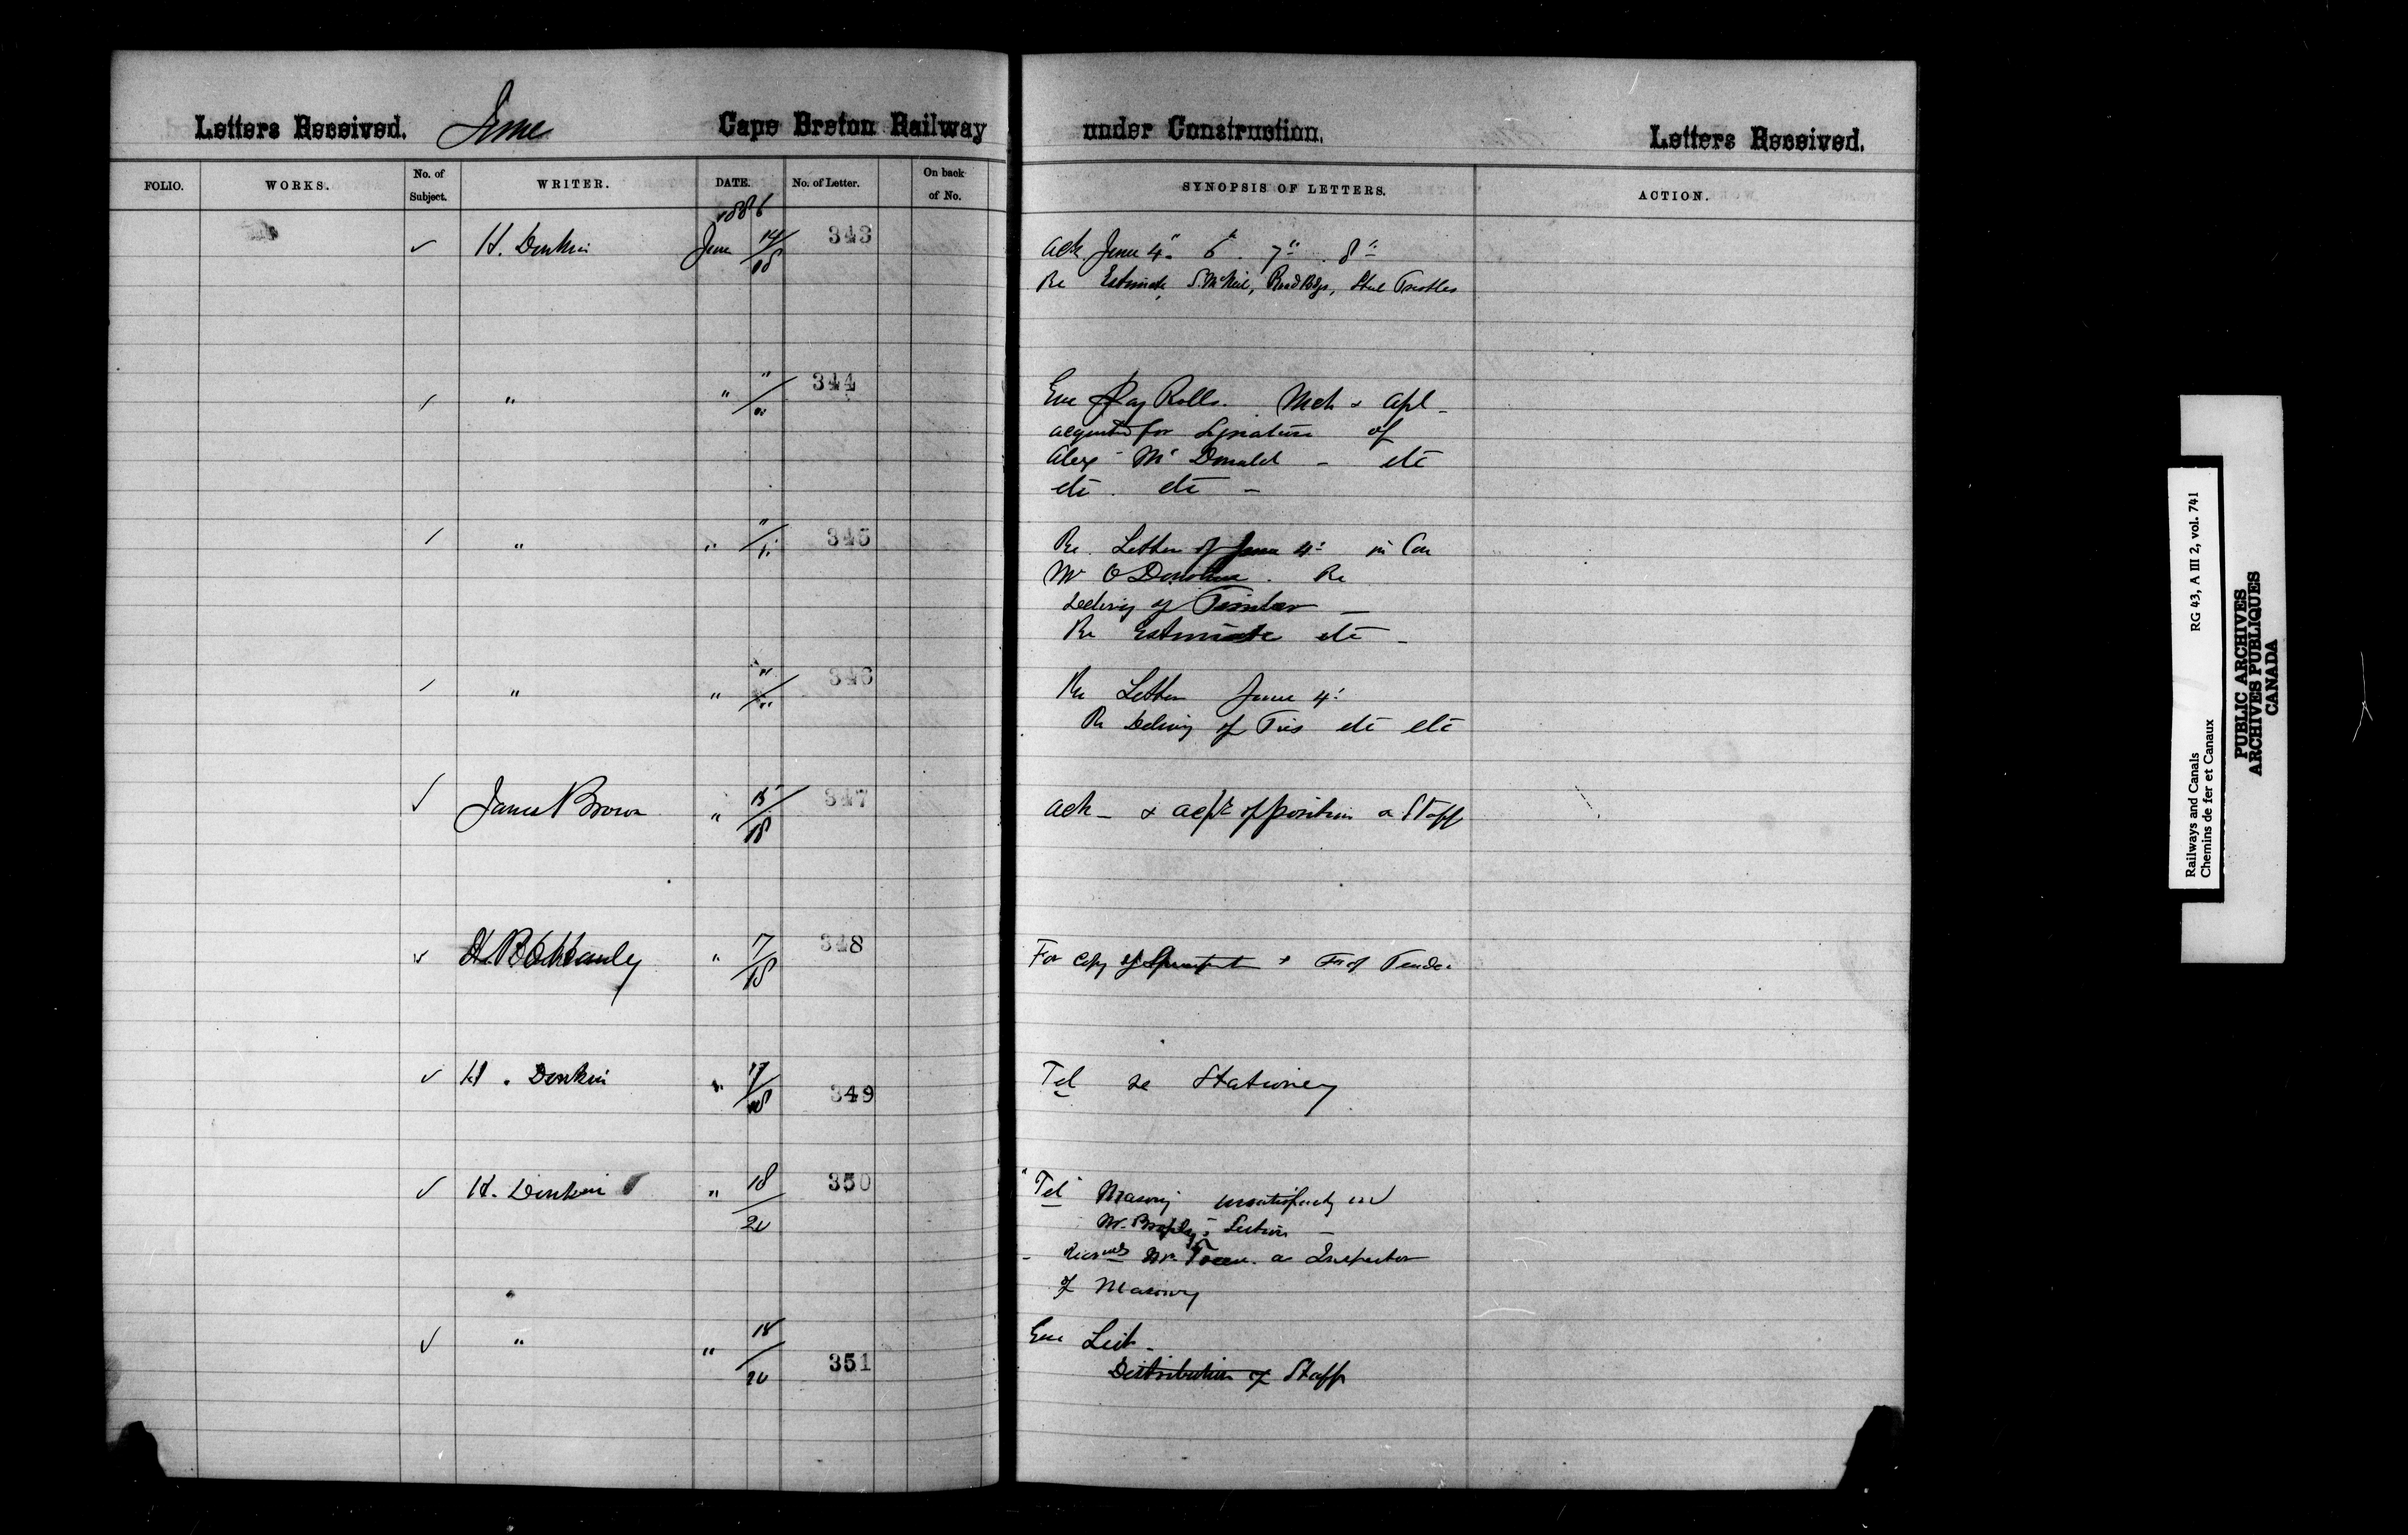 Letters Received. June Cape Breton Railway under Construction. Letters Received.
FOLIO. WORKS. No. of Subject. WRITER. DATE. No. of Letter. On back of No. SYNOPSIS OF LETTERS. ACTION.
1886
✓ H. Donkin June 14/18 343 Ack June 4" 6" 7" 8"
Re Estimate, S. McNeil, Road Bdgs, Steel Trestles
✓ " " "/" 344 Enc Pay Rolls. Mch & Apl -
for Signature of
Alex McDonald - etc
etc. etc -
✓ " " "/" 345 Re. Letter of June 4"
Mr O'Donohue. Re
of Timber -
Re Estimate etc -
✓ " " "/" 346 Re Letter June 4"
Re Delivery of Ties etc etc
✓ James Brown " 15/18 347 Ack - & acpt of position on Staff
✓ " 7/18 348 For Copy of & F of Tender
✓ H. Donkin " 17/18 349 Tel re Stationery
✓ H. Donkin " 18/20 350 "Tel" Masonry unsatisfactory on
Mr. Brophy's Section -
- Mr. as Inspector
of Masonry
✓ " " 18/20 351 Enc List -
Distribution of Staff
Railways and Canals RG 43, A III 2, vol. 741
Chemins de fer et Canaux
PUBLIC ARCHIVES
ARCHIVES PUBLIQUES
CANADA